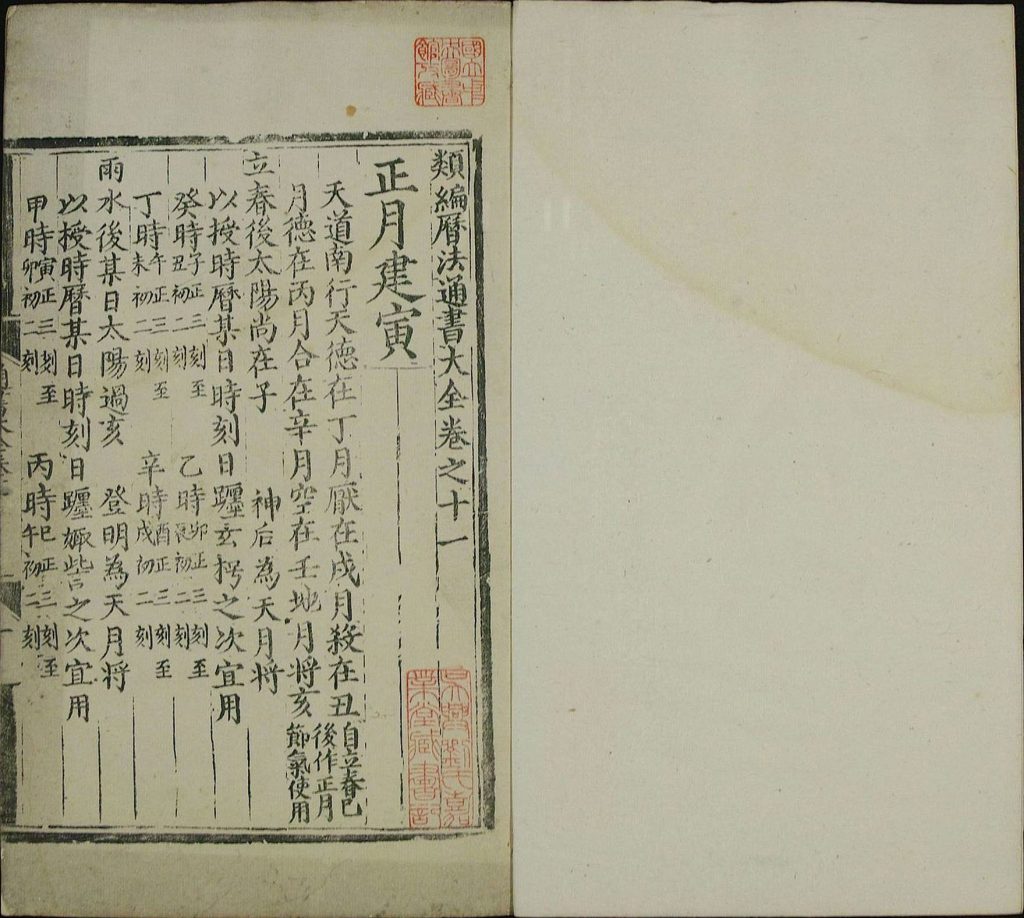 類編曆法通書大全卷之十一
正月建寅
天道南行天德在丁月厭在戌月殺在丑
月德在丙月合在辛月空在壬地月將亥
自立春已
後作正月
節氣使用
立春後太陽尚在子 神后為天月將
以授時曆某日時刻日躔玄枵之次宜用
癸時子正三刻至
丑初二刻
乙時卯正三刻至
辰初二刻
丁時午正三刻至
未初二刻
辛時酉正三刻至
戌初二刻
雨水後某日太陽過亥 登明為天月將
以授時曆某日時刻日躔娵訾之次宜用
甲時寅正三刻至
卯初二刻
丙時巳正三刻至
午初二刻
國立中
央圖書
館收藏
吳興劉氏嘉
業堂藏書記